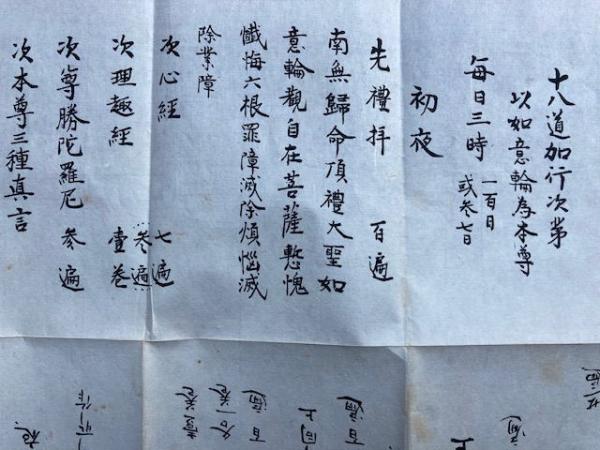 十八道加行次第
以如意輪為本尊
毎日三時 一百日
或参七日
初夜
先禮拝 百遍
南無歸命頂禮大聖如
意輪觀自在菩薩慙愧
懺悔六根罪障滅除煩惱滅
除業障
次心經 七遍
参遍
次理趣經 壹巻
次尊勝陀羅尼 参遍
次本尊三種真言
遍
上
百遍
同上
百遍
各一巻
壹巻